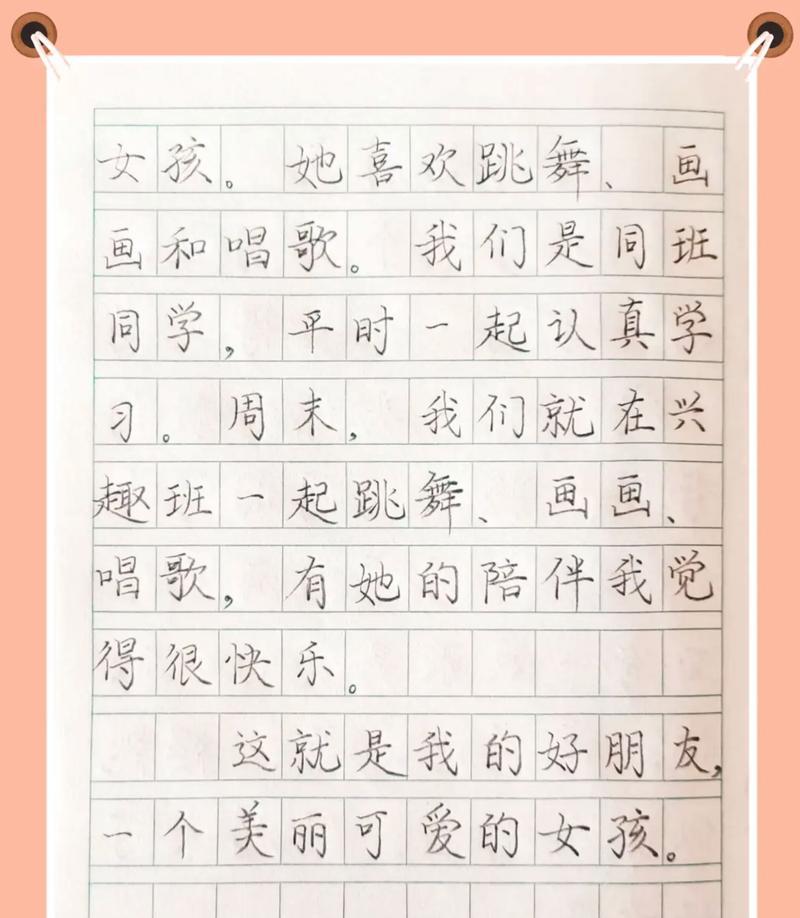 女孩。她喜欢跳舞、画
画和唱歌。我们是同班
同学，平时一起认真学
习。周末，我们就在兴
趣班一起跳舞、画画、
唱歌，有她的陪伴我觉
得很快乐。
这就是我的好朋友，
一个美丽可爱的女孩。